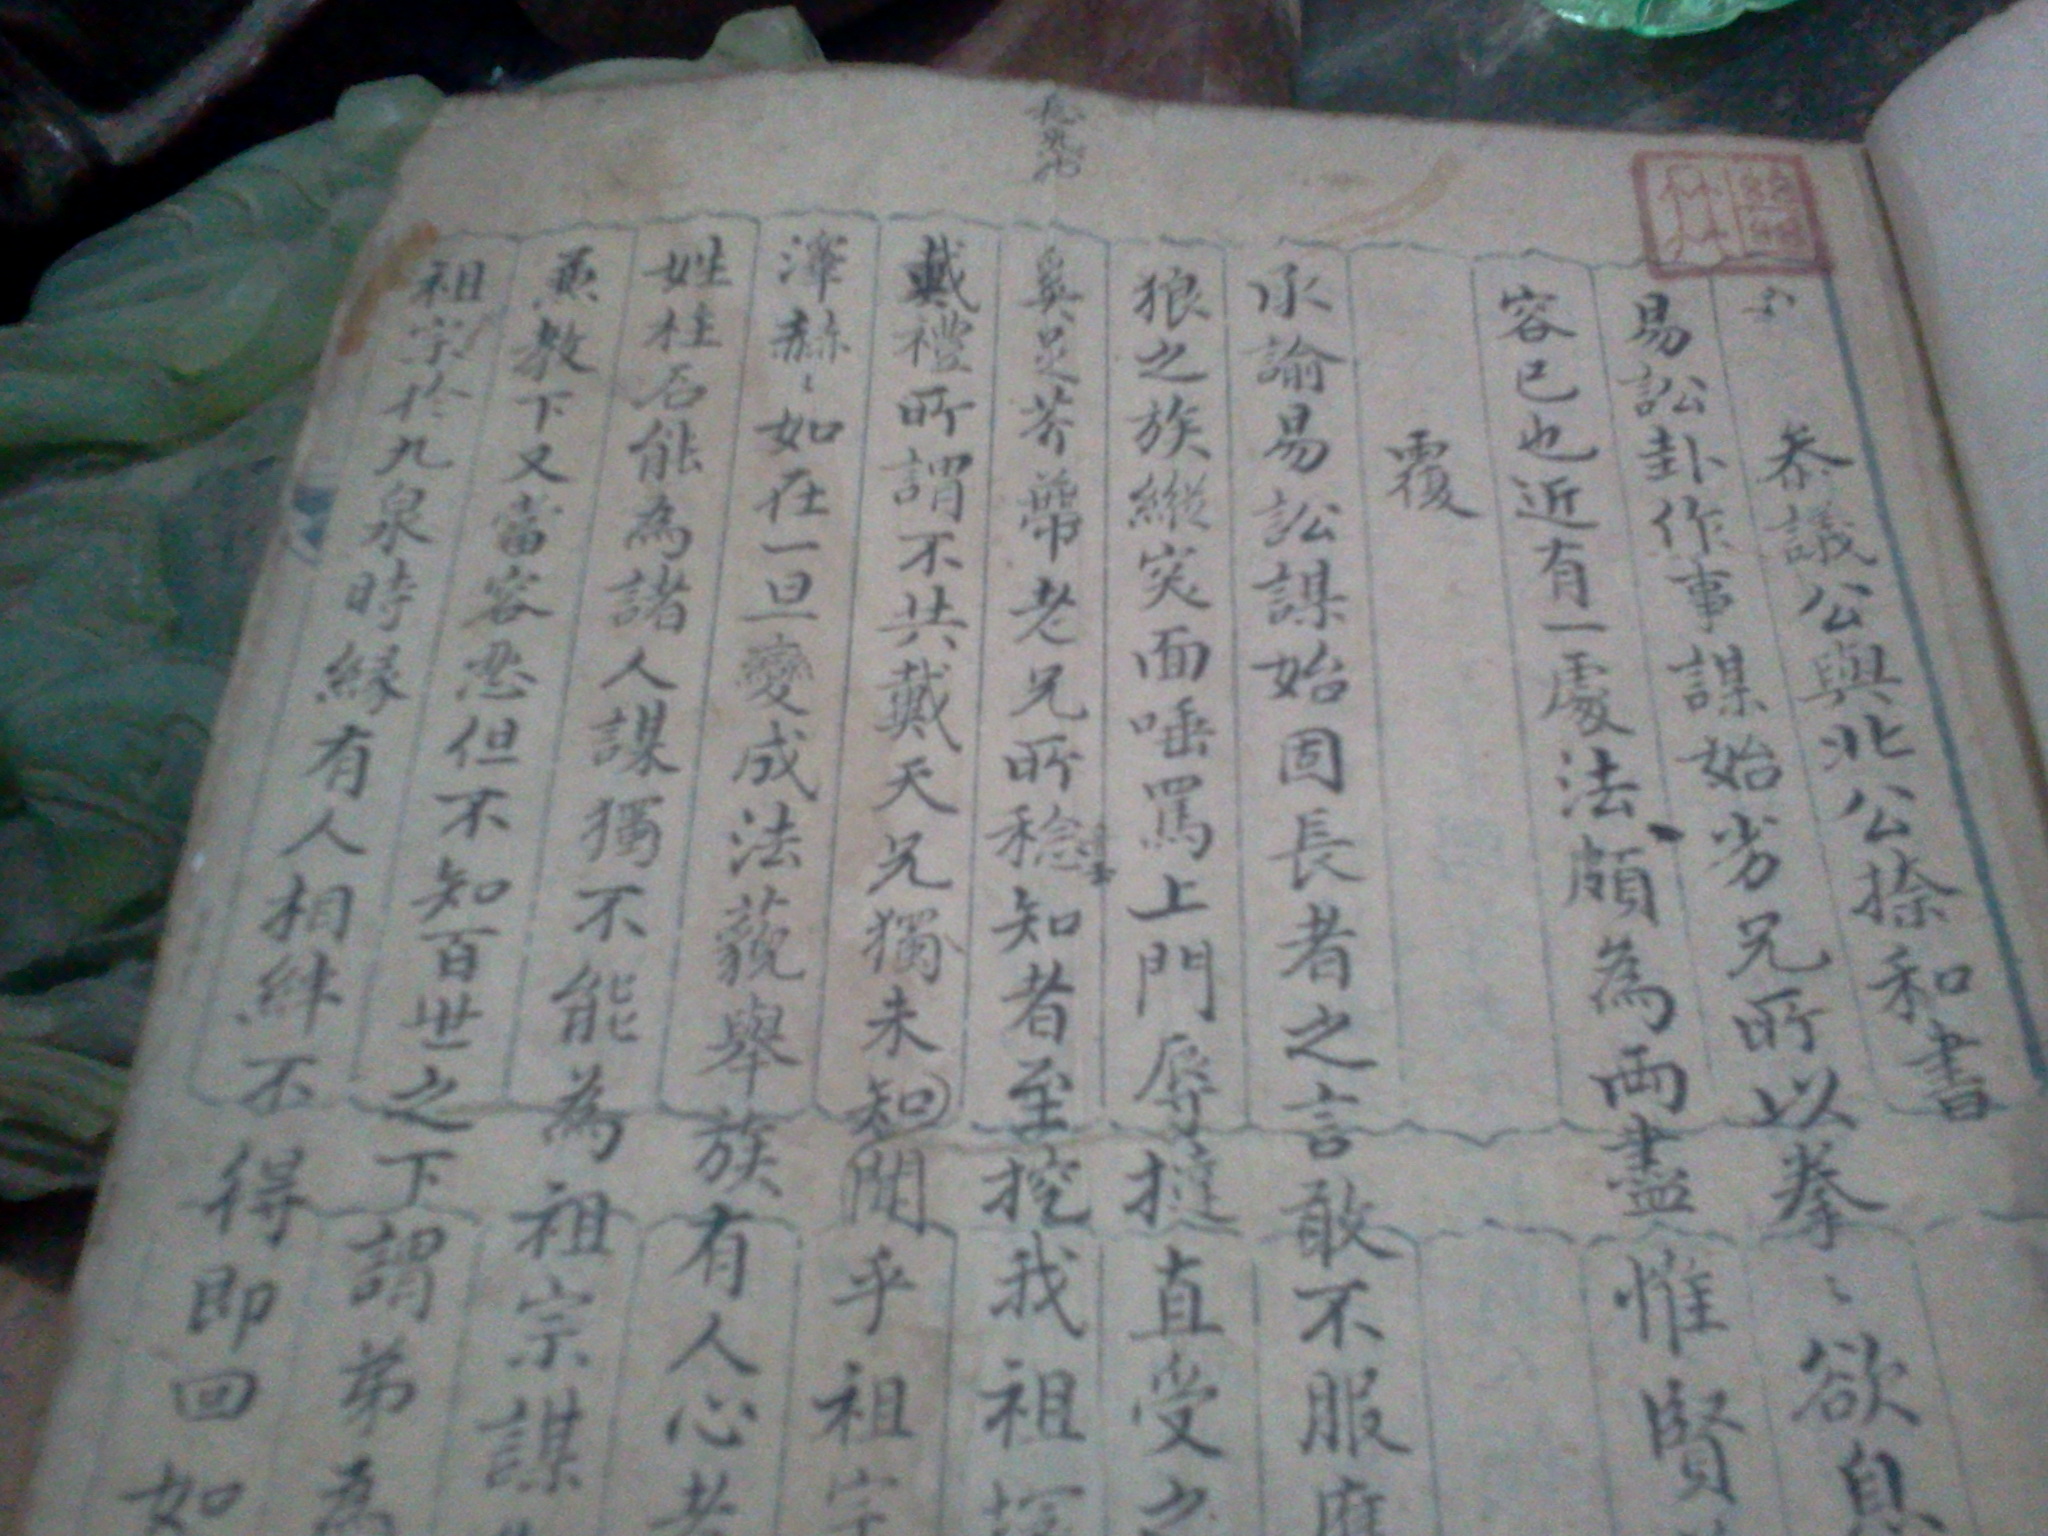 叅議公與北公捺和書
易訟卦作事謀始劣兄所以拳〻欲息
容已也近有一處法頗為兩盡惟賢
覆
承諭易訟謀始固長者之言敢不服
狼之族縱突面唾罵上門辱撻直受之
奚足芥蒂老兄所稔知者至挖我祖塚
戴禮所謂不共戴天兄獨未知聞乎祖宗
澤赫〻如在一旦變成法藐舉族有人心者
姓柱石能為諸人謀獨不能為祖宗謀
燕教下又當容忍但不知百世之下謂弟為
祖宗於九泉時緣有人相絆不得即回如